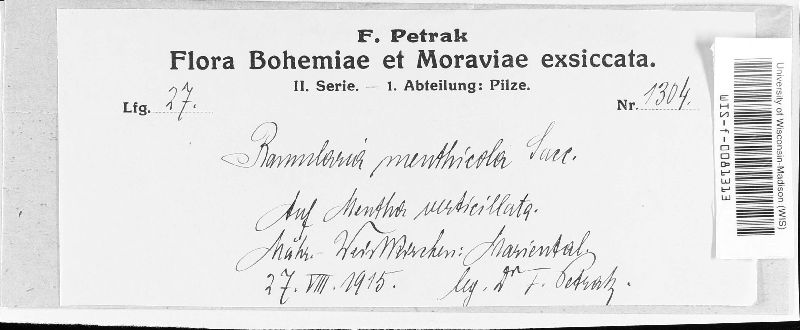 F. Petrak
Flora Bohemiae et Moraviae exsiccata.
II. Serie. — 1. Abteilung: Pilze.
Lfg. 27.
Nr. 1304.
Ramularia menthicola Sacc.
Auf Mentha verticillata.
Mähr.-Weisskirchen: Mariental,
27. VIII. 1915. leg. Dr F. Petrak.
University of Wisconsin-Madison (WIS)
WIS-f-0081313